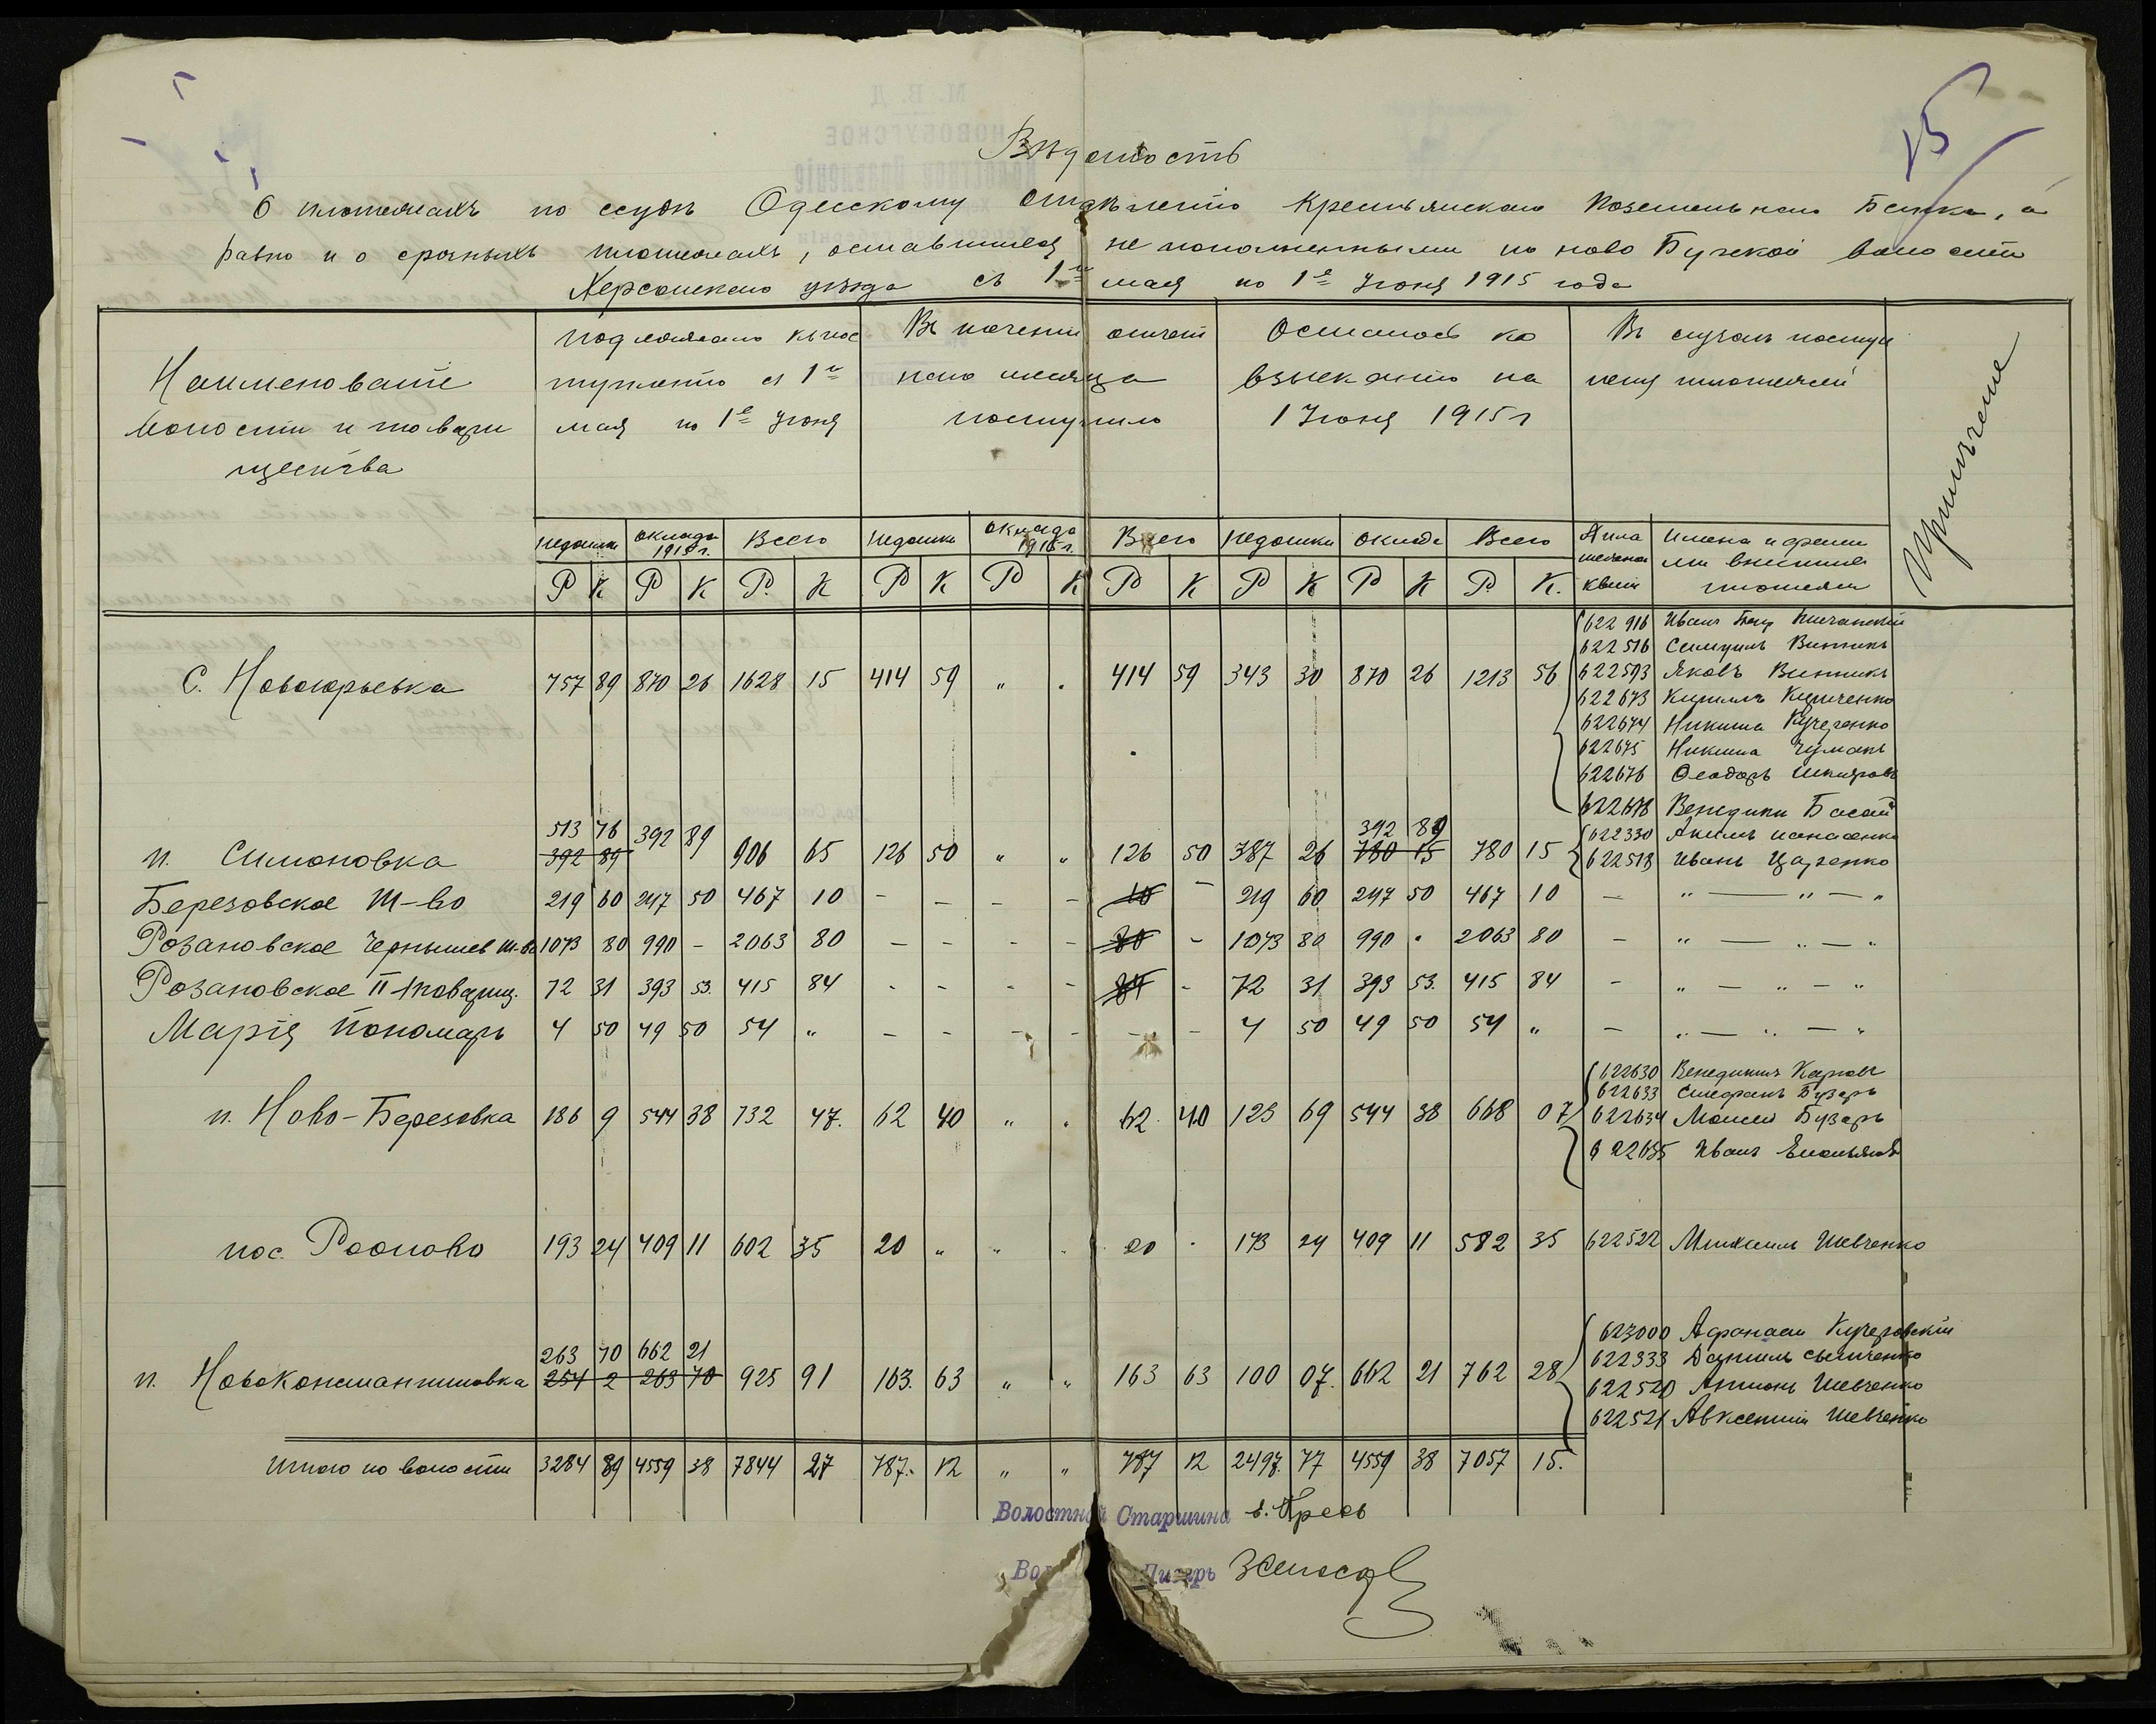 15
Вѣдомость
О платежахъ по ссудѣ Одесскому отдѣленію Крестьянскаго Поземельнаго Банка, а
равно и о срочныхъ платежахъ, оставшихся не пополненными по ново Бугской волости
Херсонскаго уѣзда съ 1го мая по 1е Іюня 1915 года
Наименованіе волости и товарищества
подлежало къ поступленію съ 1го мая по 1е Іюня
Въ теченіи отчетнаго месяца поступило
Осталось ко взысканію на 1 Іюня 1915 г
Въ случаѣ поступленія платежей
Примѣчание
Недоимки оклада 1915 г. Всего Недоимки оклада 1915 г. Всего Недоимки оклада Всего
Р К Р К Р. К Р К Р К Р К Р К Р К Р К.
Имена и фамиліи внесшихъ платежи
С. Новоюрьевка 757 89 870 26 1628 15 414 59 „ . 414 59 343 30 870 26 1213 56
622916 Иванъ
622516 Самуилъ Винникъ
622593 Яковъ Винникъ
622673 Кириллъ Кириченко
622674 Никита Кучеренко
622675 Никита Чуманъ
622676 Феодоръ Шкляровъ
622678 Венедиктъ Басай
513 76 392 89 392 89
п. Симоновка 392 89 906 65 126 50 „ „ 126 50 387 26 780 15 780 15
622330 Акимъ Панасенко
622518 Иванъ Цаденко
Березовское Т-во 219 60 247 50 467 10 - - - - 10 - 219 60 247 50 467 10 - „ — „ — „
Розановское Чернышев т-во 1073 80 990 - 2063 80 - - - - 80 - 1073 80 990 . 2063 80 - „ — „ — „
Розановское II Товарищ. 72 31 393 53. 415 84 - - - - 84 - 72 31 393 53. 415 84 - „ — „ — „
Марія Пономарь 4 50 49 50 54 „ - - - - - - 4 50 49 50 54 „ - „ — „ — „
п. Ново-Березовка 186 9 544 38 732 47. 62 40 „ . 62 40 123 69 544 38 668 07
622630 Венедиктъ Карповъ
622633 Стефанъ Бузарь
622634 Моисей Бузарь
622635 Иванъ Емельяновъ
пос. Роопово 193 24 409 11 602 35 20 „ „ . 20 . 173 24 409 11 582 35 622522 Михаилъ Шевченко
263 70 662 21
п. Новоконстантиновка 254 2 263 70 925 91 163. 63 „ „ 163 63 100 07. 662 21 762 28
623000 Афанасій Кучеровскій
622333 Даниилъ
622520 Антонъ Шевченко
622521 Авксентій Шевченко
Итого по волости 3284 89 4559 38 7844 27 787. 12 „ „ 787 12 2497. 77 4559 38 7057 15.
Волостной Старшина
Писарь